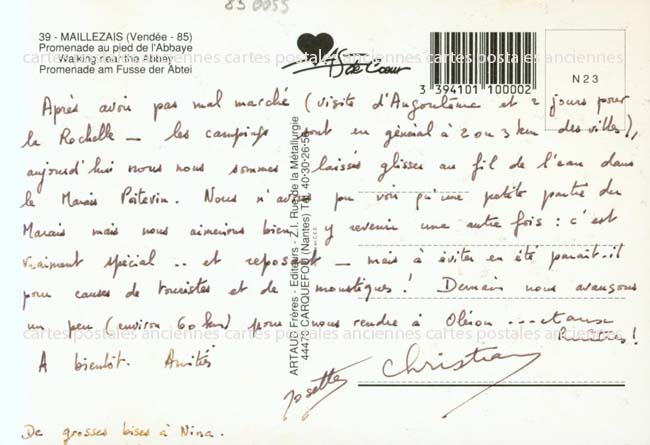 83 0055
39 - MAILLEZAIS (Vendée - 85)
Promenade au pied de l'Abbaye
Walking near the Abbey
Promenade am Fusse der Abtei
As de Cœur
3 394101 100002
N 23
ARTAUD Frères - Editeurs - Z.I. Rue de la Métallurgie
44470 CARQUEFOU (Nantes) Tél. 40-30-26-5
Après avoir pas mal marché (visite d'Angoulême et 2 jours pour
la Rochelle - les campings sont en général à 2 ou 3 km des villes),
aujourd'hui nous nous sommes laissés glisser au fil de l'eau dans
le Marais Poitevin. Nous n'avons pu voir qu'une petite partie du
Marais mais nous aimerions bien y revenir une autre fois : c'est
vraiment spécial .. et reposant - mais à éviter en été paraît-il
pour causes de touristes et de moustiques ! Demain nous avançons
un peu (environ 60 km) pour nous rendre à Oléron ... et aux
huîtres !
A bientôt. Amitiés
Josette Christian
De grosses bises à Nina.
cartes postales anciennes cartes postales anciennes cartes postales anciennes
cartes postales anciennes cartes postales anciennes cartes postales anciennes